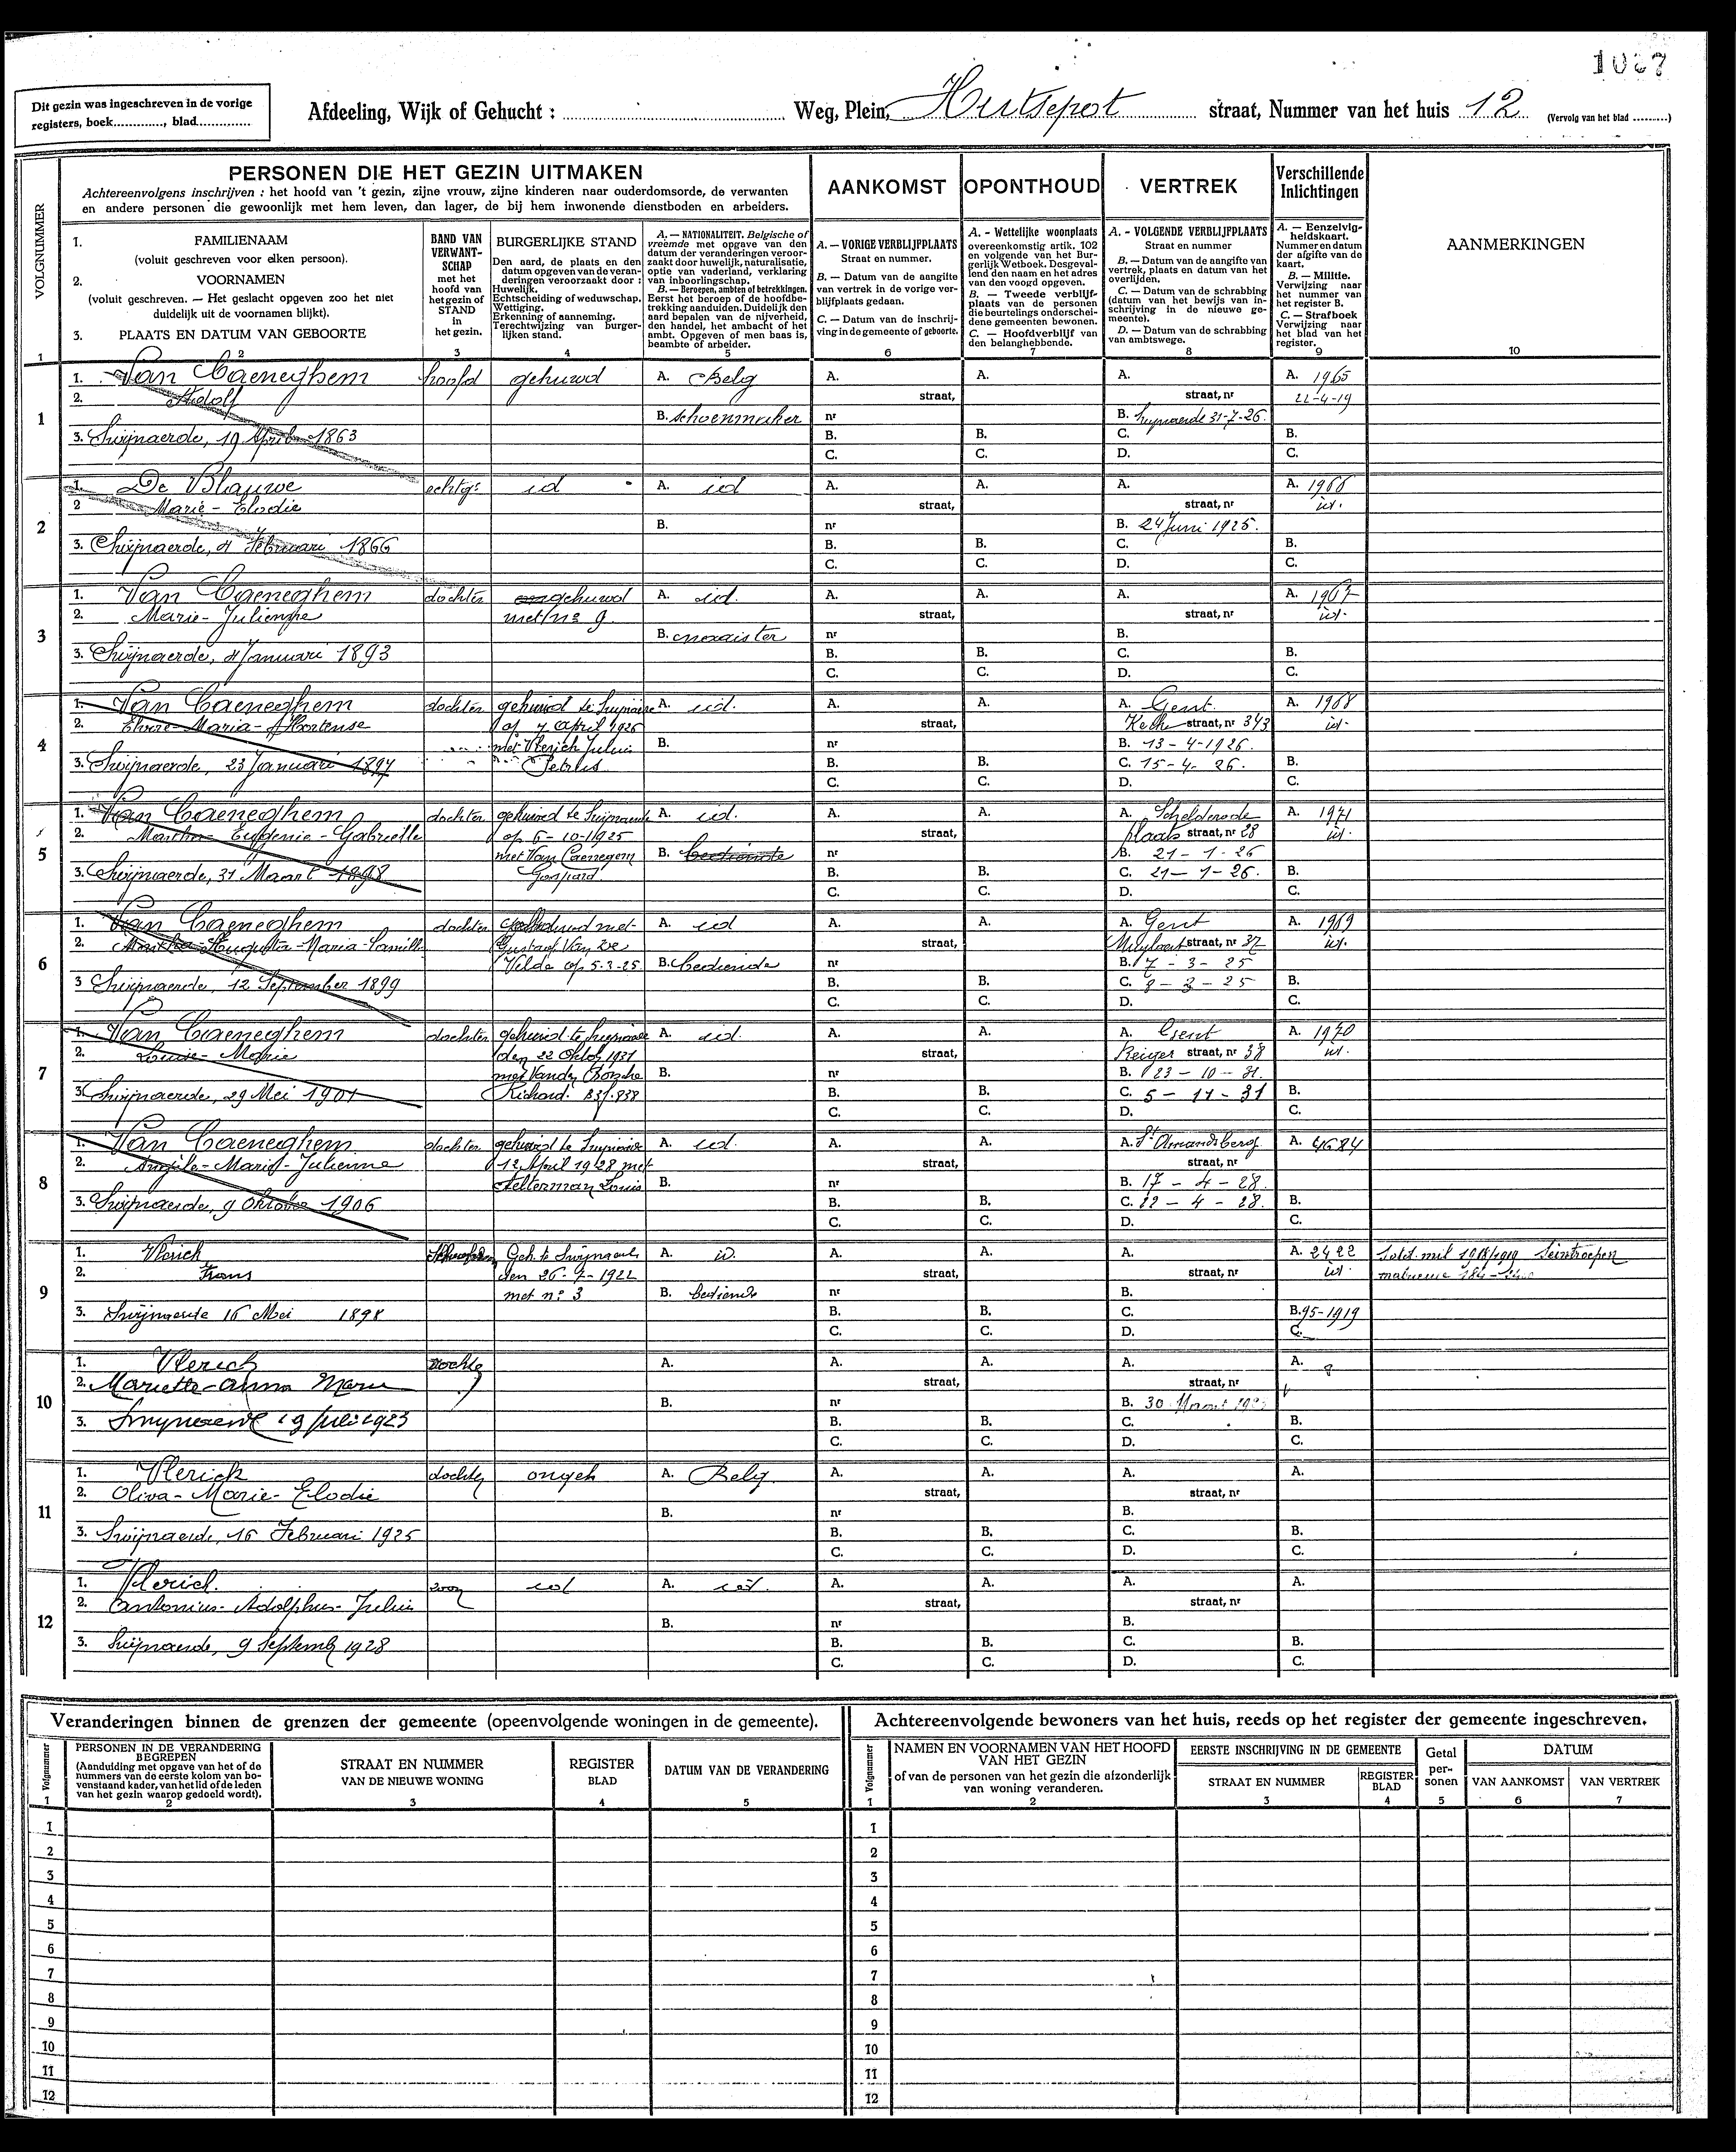 1067
Dit gezin was ingeschreven in de vorige
registers, boek............, blad.............
Afdeeling, Wijk of Gehucht :
Weg, Plein, Hutsepot straat, Nummer van het huis 12 (Vervolg van het blad .........)
PERSONEN DIE HET GEZIN UITMAKEN
Achtereenvolgens inschrijven : het hoofd van 't gezin, zijne vrouw, zijne kinderen naar ouderdomsorde, de verwanten
en andere personen die gewoonlijk met hem leven, dan lager, de bij hem inwonende dienstboden en arbeiders.
AANKOMST
OPONTHOUD
VERTREK
Verschillende
Inlichtingen
VOLGNUMMER
1. FAMILIENAAM
(voluit geschreven voor elken persoon).
2. VOORNAMEN
(voluit geschreven. — Het geslacht opgeven zoo het niet
duidelijk uit de voornamen blijkt).
3. PLAATS EN DATUM VAN GEBOORTE
BAND VAN
VERWANT-
SCHAP
met het
hoofd van
het gezin of
STAND
in
het gezin.
BURGERLIJKE STAND
Den aard, de plaats en den
datum opgeven van de veran-
deringen veroorzaakt door :
Huwelijk.
Echtscheiding of weduwschap.
Wettiging.
Erkenning of aanneming.
Terechtwijzing van burger-
lijken stand.
A. — NATIONALITEIT. Belgische of
vreemde met opgave van den
datum der veranderingen veroor-
zaakt door huwelijk, naturalisatie,
optie van vaderland, verklaring
van inboorlingschap.
B. — Beroepen, ambten of betrekkingen.
Eerst het beroep of de hoofdbe-
trekking aanduiden. Duidelijk den
aard bepalen van de nijverheid,
den handel, het ambacht of het
ambt. Opgeven of men baas is,
beambte of arbeider.
A. — VORIGE VERBLIJFPLAATS
Straat en nummer.
B. — Datum van de aangifte
van vertrek in de vorige ver-
blijfplaats gedaan.
C. — Datum van de inschrij-
ving in de gemeente of geboorte.
A. - Wettelijke woonplaats
overeenkomstig artik. 102
en volgende van het Bur-
gerlijk Wetboek. Desgeval-
lend den naam en het adres
van den voogd opgeven.
B. — Tweede verblijf-
plaats van de personen
die beurtelings onderschei-
dene gemeenten bewonen.
C. — Hoofdverblijf van
den belanghebbende.
A. - VOLGENDE VERBLIJFPLAATS
Straat en nummer
B. — Datum van de aangifte van
vertrek, plaats en datum van het
overlijden.
C. — Datum van de schrabbing
(datum van het bewijs van in-
schrijving in de nieuwe ge-
meente).
D. — Datum van de schrabbing
van ambtswege.
A. — Eenzelvig-
heidskaart.
Nummer en datum
der afgifte van de
kaart.
B. — Militie.
Verwijzing naar
het nummer van
het register B.
C. — Strafboek
Verwijzing naar
het blad van het
register.
AANMERKINGEN
1 2 3 4 5 6 7 8 9 10
1
1. Van Caeneghem hoofd gehuwd A. Belg A. A. A. A. 1965
2. Adolf straat, straat, nr 22-4-19
B. schoenmaker nr B. Swynaerde 31-7-26.
3. Swijnaerde, 19 April 1863 B. B. C. B.
C. C. D. C.
2
1. De Blauwe echtge id A. id A. A. A. A. 1966
2 Marie - Elodie straat, straat, nr id.
B. nr B. 24 Juni 1925.
3. Swijnaerde, 4 Februari 1866 B. B. C. B.
C. C. D. C.
3
1. Van Caeneghem dochter ongehuwd A. id. A. A. A. A. 1967
2. Marie - Julienne met no 9 straat, straat, nr id.
B. nr B.
3. Swijnaerde, 4 Januari 1893 B. B. C. B.
C. C. D. C.
4
1. Van Caeneghem dochter gehuwd te Swijnaerde A. id. A. A. A. Gent A. 1968
2. Elvire - Maria - Hortense op 7 April 1926 straat, straat, nr 343 id.
met Vlerick Julius B. nr B. 13 - 4 - 1926.
3. Swijnaerde, 23 Januari 1897 Petrus B. B. C. 15 - 4 - 26. B.
C. C. D. C.
5
1. Van Caeneghem dochter gehuwd te Swijnaerde A. id. A. A. A. Schelderode A. 1971
2. Martha - Eugenie - Gabrielle op 6 - 10 - 1925 straat, plaats straat, nr 28 id.
met Van Caenegem B. bediende nr B. 21 - 1 - 26
3. Swijnaerde, 31 Maart 1898 Gaspard B. B. C. 21 - 1 - 26. B.
C. C. D. C.
6
1. Van Caeneghem dochter gehuwd met A. id A. A. A. Gent A. 1969
2. Martha - Augusta - Maria - Camille Gustaaf Van de straat, straat, nr 37 id.
Velde op 5-3-25 B. bediende nr B. 7 - 3 - 25
3 Swijnaerde, 12 September 1899 B. B. C. 8 - 3 - 25 B.
C. C. D. C.
7
1. Van Caeneghem dochter gehuwd te Swijnaerde A. id. A. A. A. Gent A. 1970
2. Louise - Marie den 22 Oktob 1931 straat, Keizer straat, nr 38 id.
met Vanden B. nr B. 23 - 10 - 31.
3. Swijnaerde, 29 Mei 1901 Richard. B. B. C. 5 - 11 - 31 B.
C. C. D. C.
8
1. Van Caeneghem dochter gehuwd te Swijnaerde A. id. A. A. A. St Amandsberg A. 4684
2. Angèle - Maria - Julienne 12 April 1928 met straat, straat, nr
Aelterman Louis B. nr B. 17 - 4 - 28.
3. Swijnaerde, 9 Oktober 1906 B. B. C. 22 - 4 - 28. B.
C. C. D. C.
9
1. Vlerick Schoonzoon Geh. te Swijnaerde A. id. A. A. A. A. 2422 Sold. mil 1918/1919
2. Frans den 26-7-1922 straat, straat, nr id.
met no 3 B. bediende nr B.
3. Swijnaerde 16 Mei 1898 B. B. C. B. 95-1919
C. C. D. C.
10
1. Vlerick dochter A. A. A. A. A.
2. Mariette - Anna Maria straat, straat, nr
B. nr B. 30 Maart
3. Swynaerde 19 Juli 1923 B. B. C. B.
C. C. D. C.
11
1. Vlerick dochter ongeh A. Belg A. A. A. A.
2. Oliva - Marie - Elodie straat, straat, nr
B. nr B.
3. Swijnaerde, 16 Februari 1925 B. B. C. B.
C. C. D. C.
12
1. Vlerick zoon id A. id. A. A. A. A.
2. Antonius - Adolphus - Julius straat, straat, nr
B. nr B.
3. Swijnaerde, 9 Septemb 1928 B. B. C. B.
C. C. D. C.
Veranderingen binnen de grenzen der gemeente (opeenvolgende woningen in de gemeente).
Volgnummer
PERSONEN IN DE VERANDERING
BEGREPEN
(Aanduiding met opgave van het of de
nummers van de eerste kolom van bo-
venstaand kader, van het lid of de leden
van het gezin waarop gedoeld wordt).
STRAAT EN NUMMER
VAN DE NIEUWE WONING
REGISTER
BLAD
DATUM VAN DE VERANDERING
1 2 3 4 5
1
2
3
4
5
6
7
8
9
10
11
12
Achtereenvolgende bewoners van het huis, reeds op het register der gemeente ingeschreven.
Volgnummer
NAMEN EN VOORNAMEN VAN HET HOOFD
VAN HET GEZIN
of van de personen van het gezin die afzonderlijk
van woning veranderen.
EERSTE INSCHRIJVING IN DE GEMEENTE
STRAAT EN NUMMER
REGISTER
BLAD
Getal
per-
sonen
DATUM
VAN AANKOMST
VAN VERTREK
1 2 3 4 5 6 7
1
2
3
4
5
6
7
8
9
10
11
12